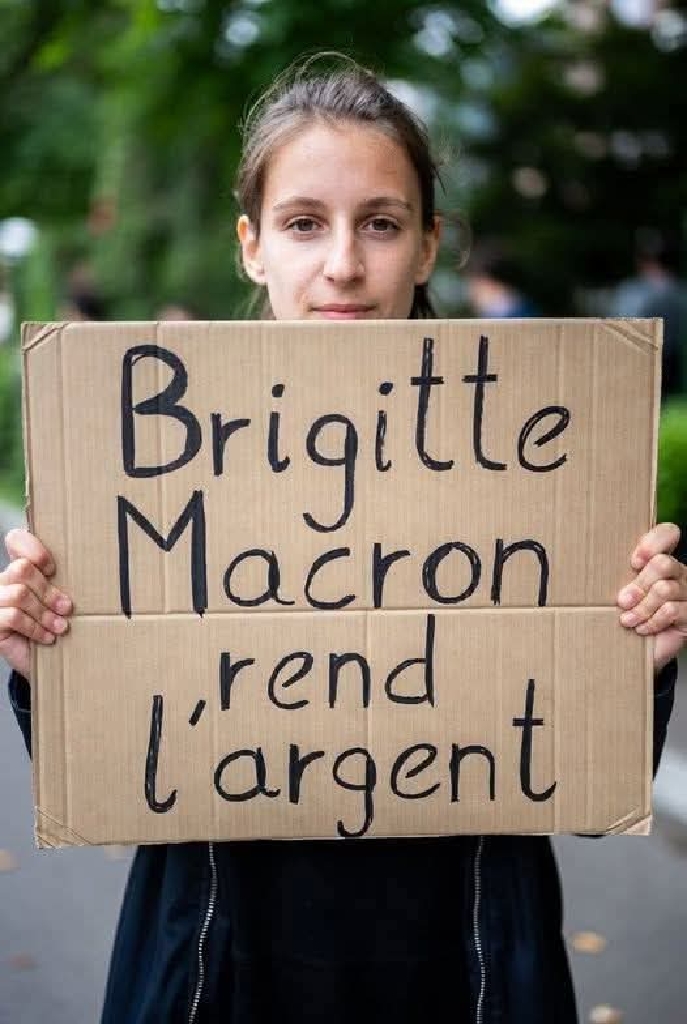 Brigitte
Macron
rend
l'argent